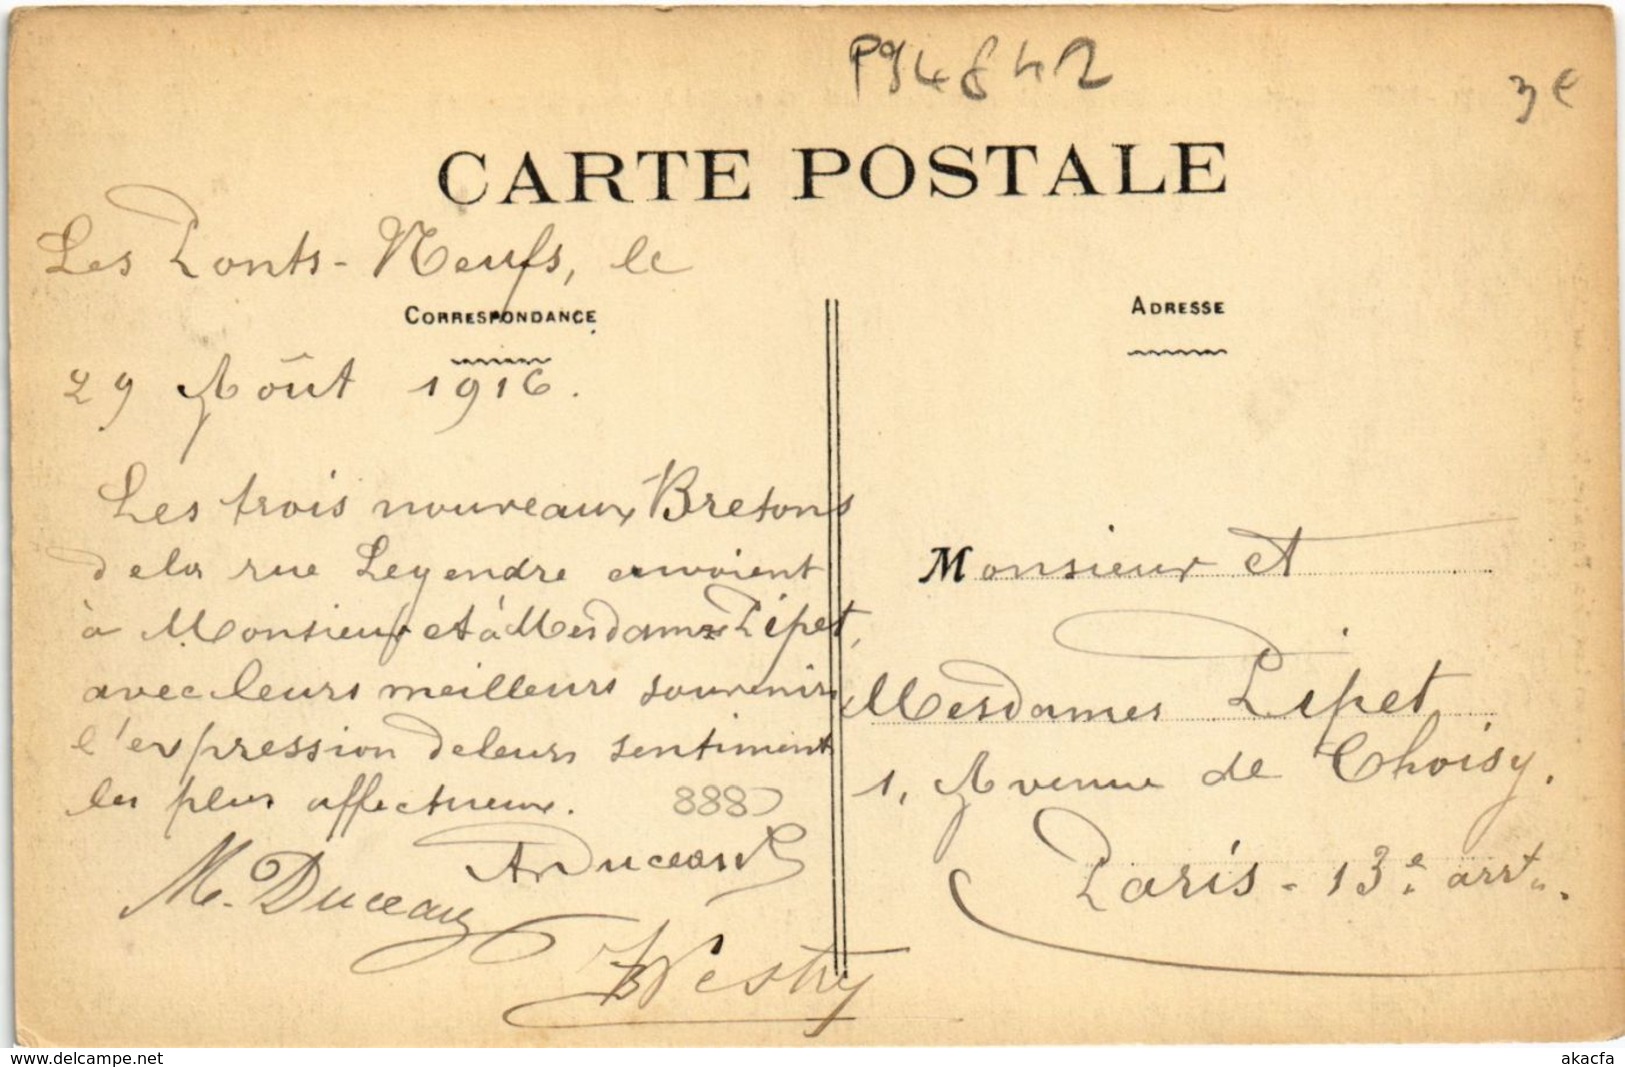 P94842
3€
CARTE POSTALE
Les Ponts-Neufs, le
CORRESPONDANCE
29 Août 1916.
Les trois nouveaux Bretons
de la rue Legendre envoient
à Monsieur et à Mesdames Pipet,
avec leurs meilleurs souvenirs
l'expression de leurs sentiments
les plus affectueux.
888
M. Duceau
ADRESSE
Monsieur et
Mesdames Pipet
1, Avenue de Choisy.
Paris - 13e arrt.
www.delcampe.net
akacfa